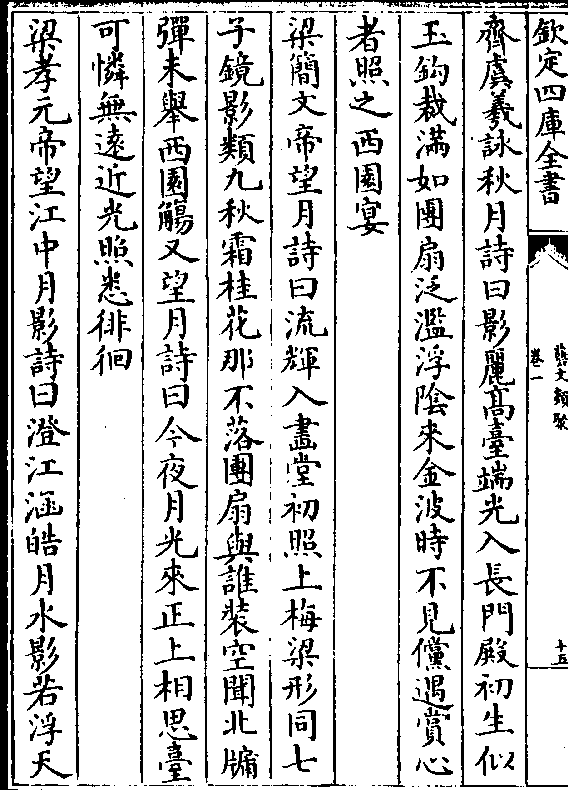 欽定四庫全書
藝文類聚
卷一
十五
齊虞羲詠秋月詩曰影麗髙臺端光入長門殿初生似
玉鈎裁滿如團扇泛濫浮陰來金波時不見儻遇賞心
者照之西園宴
梁簡文帝望月詩曰流輝入畫堂初照上梅梁形同七
子鏡影類九秋霜桂花那不落團扇與誰裝空聞北牖
彈未舉西園觴又望月詩曰今夜月光來正上相思臺
可憐無遠近光照悉徘徊
梁孝元帝望江中月影詩曰澄江涵皓月水影若浮天